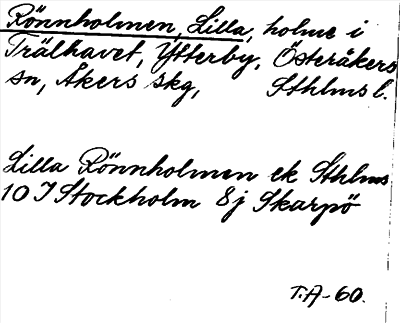 Rönnholmen, Lilla, holme i
Trälhavet, Ytterby, Österåkers
sn, Åkers skg, Sthlms l.
Lilla Rönnholmen ek Sthlms
10 I Stockholm 8j Skarpö
T.A-60.